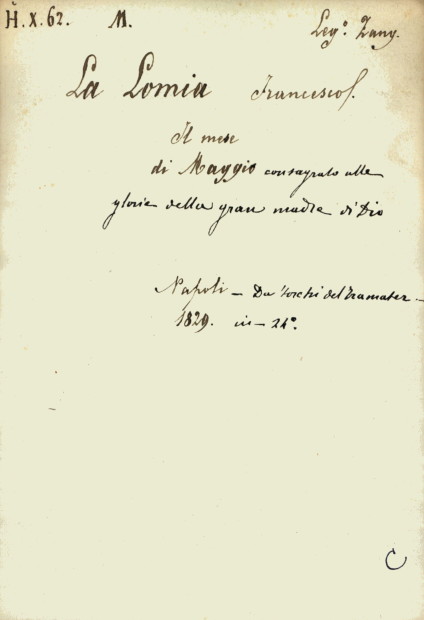 H.X.62. M. Leg.º Zang.
La Lomia Francesco.
Il mese
di Maggio consagrato alle
glorie della gran madre di Dio
Napoli – Da' torchi del Tramater –
1829. in – 24º.
C